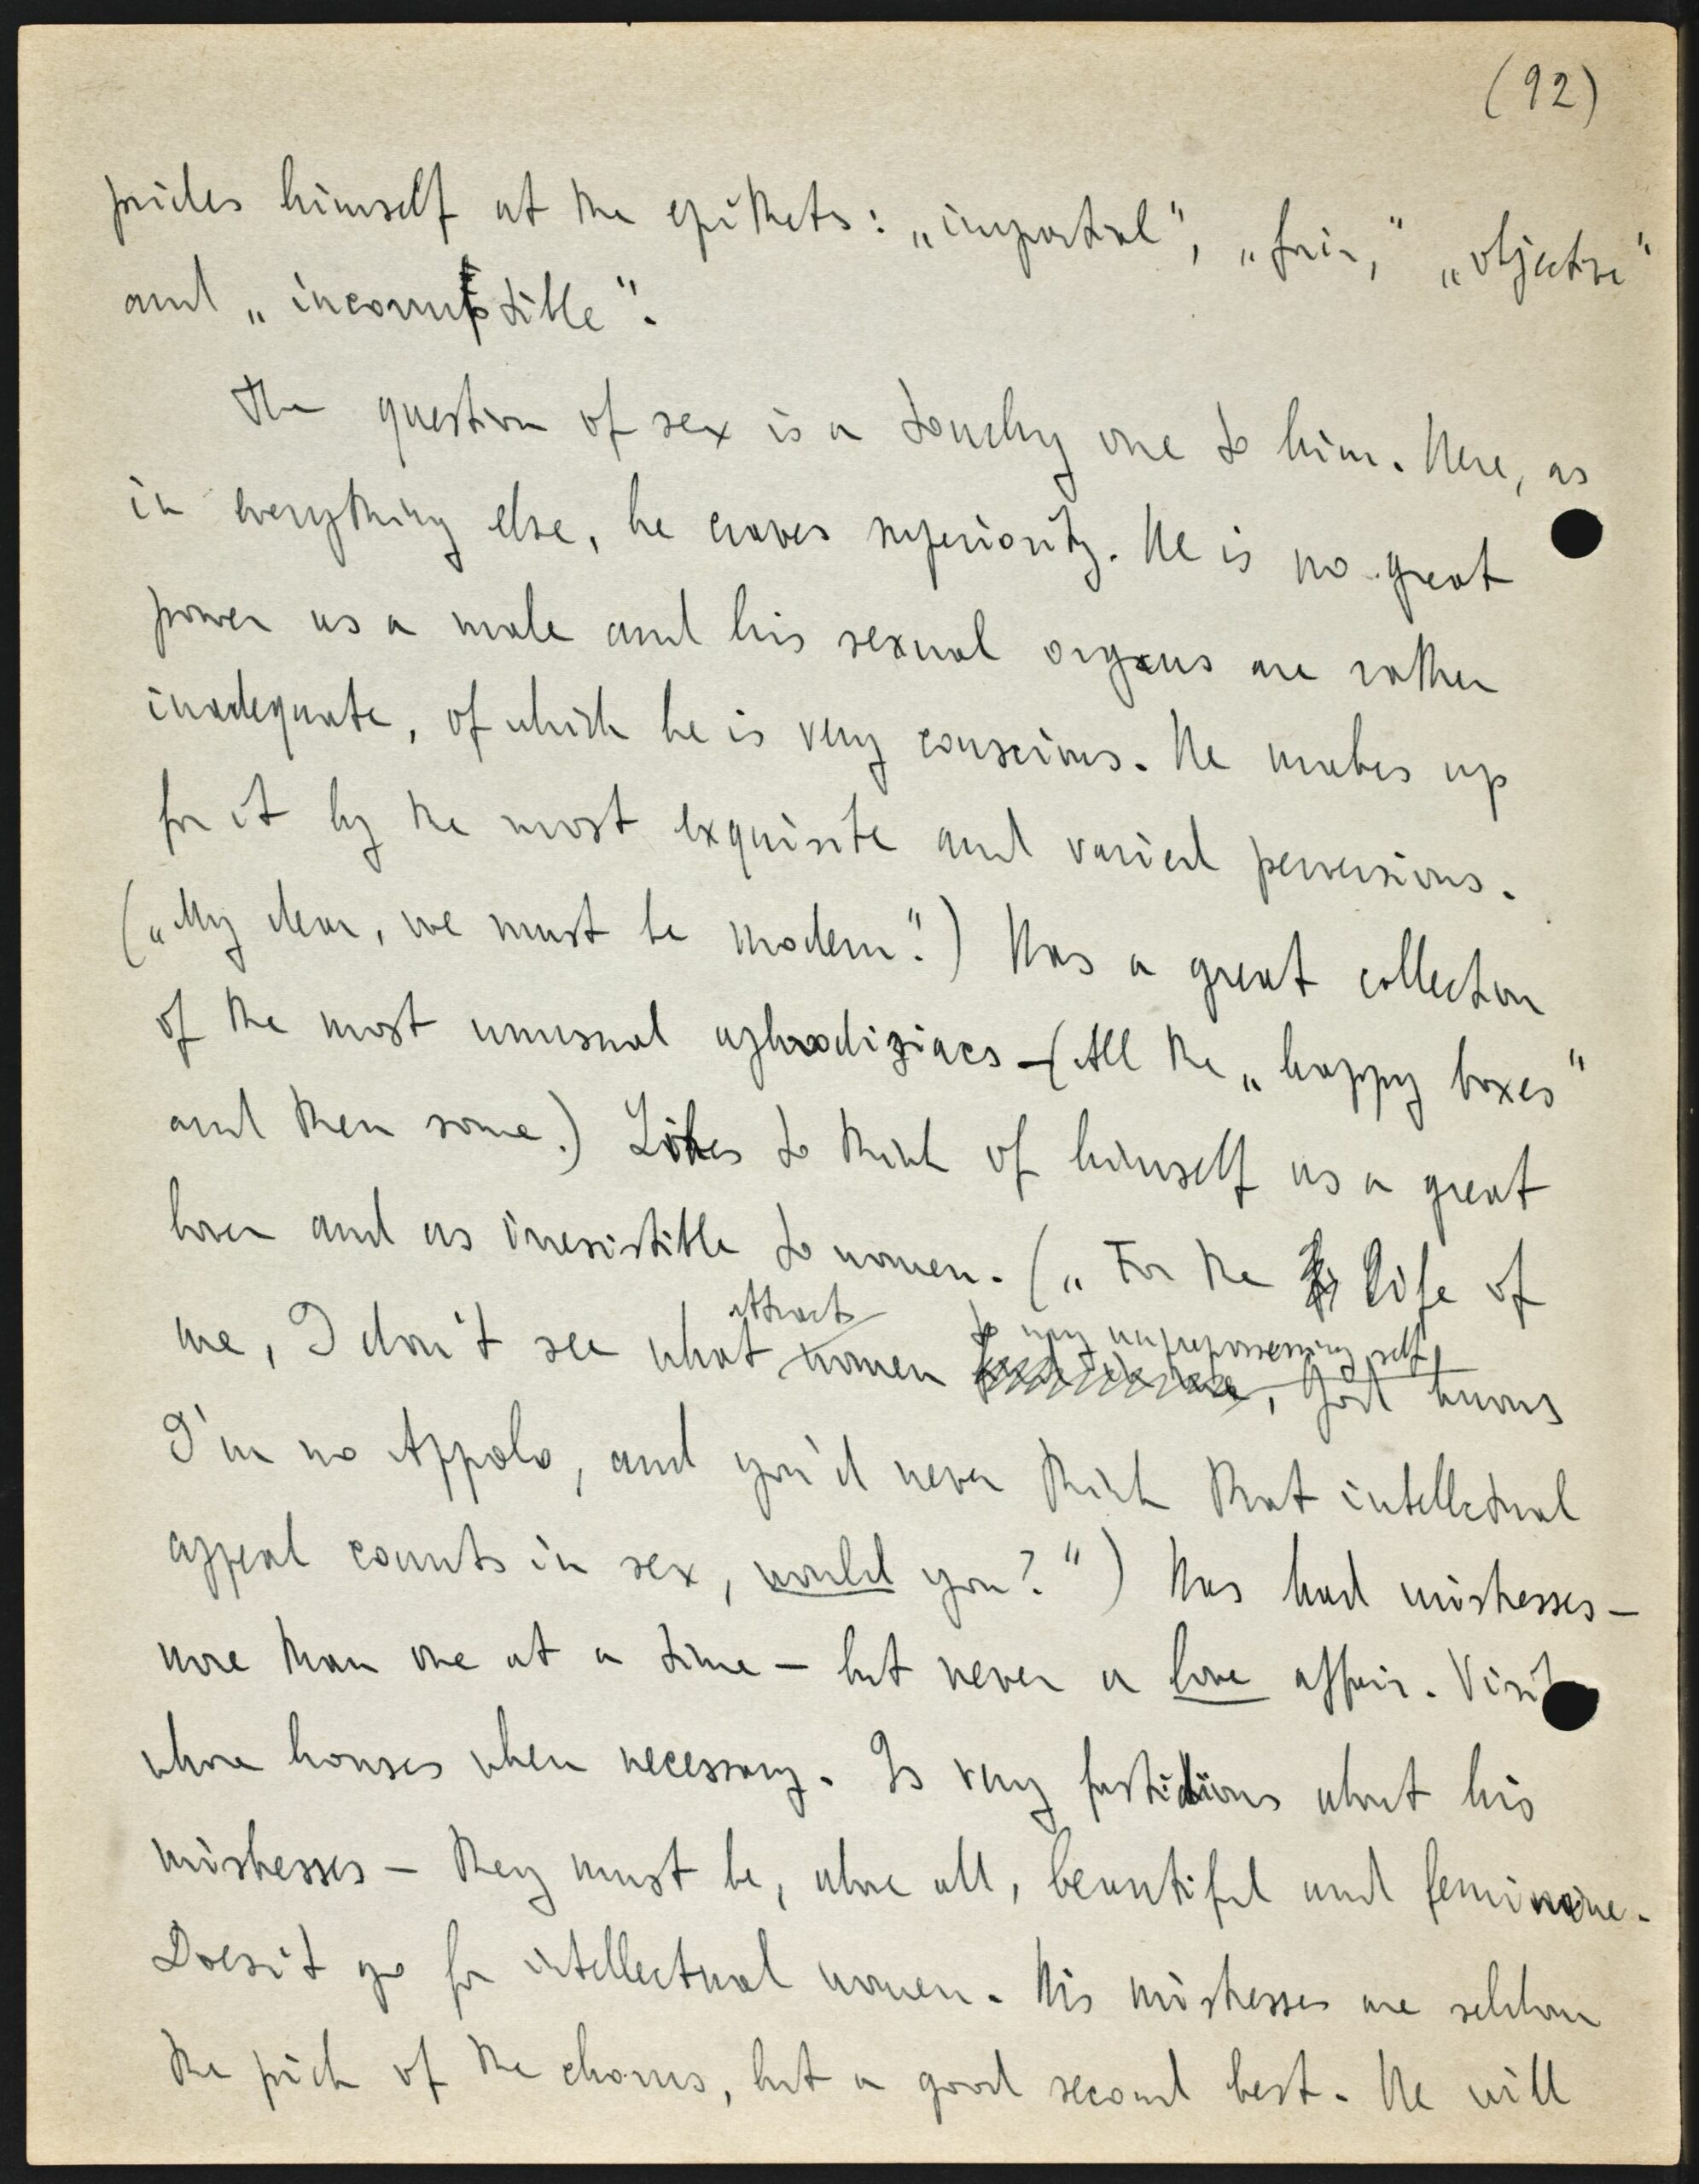 (92)
prides himself at the epithets: „impartial", „fair," „objective"
and „incorruptible".
The question of sex is a touchy one to him. Here, as
in everything else, he craves superiority. He is no great
power as a male and his sexual organs are rather
inadequate, of which he is very conscious. He makes up
for it by the most exquisite and varied perversions.
(„My dear, we must be modern".) Has a great collection
of the most unusual aphrodiziacs — (All the „happy boxes"
and then some.) Likes to think of himself as a great
lover and as irresistible to women. („For the life of
me, I don't see what attracts women to my unprepossessing self, God knows
I'm no Appolo, and you'd never think that intellectual
appeal counts in sex, would you?") Has had mistresses —
more than one at a time — but never a love affair. Visits
whore houses when necessary. Is very fastidious about his
mistresses — they must be, above all, beautiful and feminine.
Doesn't go for intellectual women. His mistresses are seldom
the pick of the chorus, but a good second best. He will